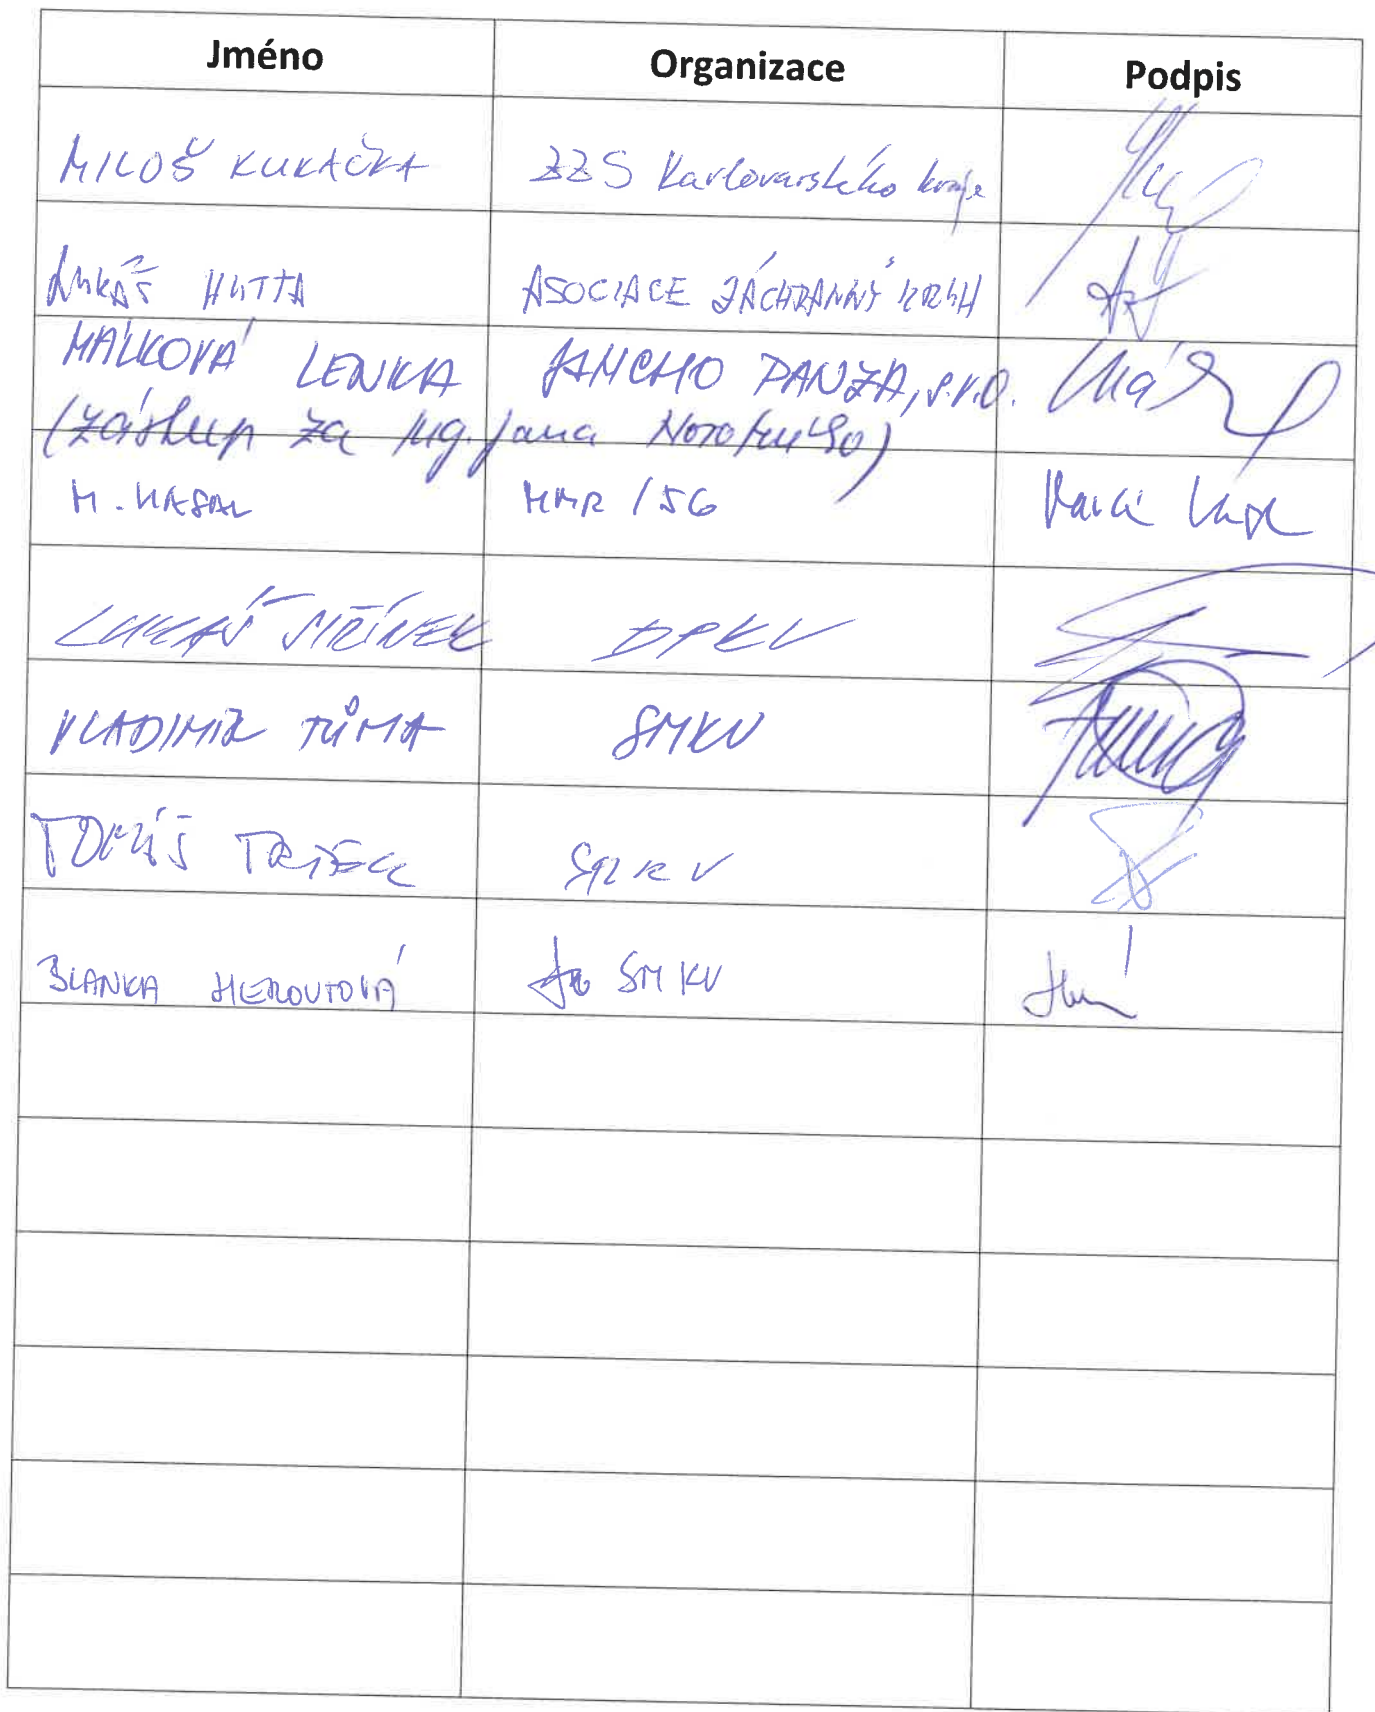 Jméno Organizace Podpis
MILOŠ KUKAČKA ZZS Karlovarského kraje
Lukáš HUTTA ASOCIACE ZÁCHRANNÝ KRUH
MÁLKOVÁ LENKA JANCHO PANZA, s.r.o.
(zástup za Ing. Jana Novotného)
M. KASAL MMR / 56
LUKÁŠ SIŘÍNEK DPKV
VLADIMÍR TŮMA SMKV
TOMÁŠ SMKV
BLANKA HEROUTOVÁ SMKV